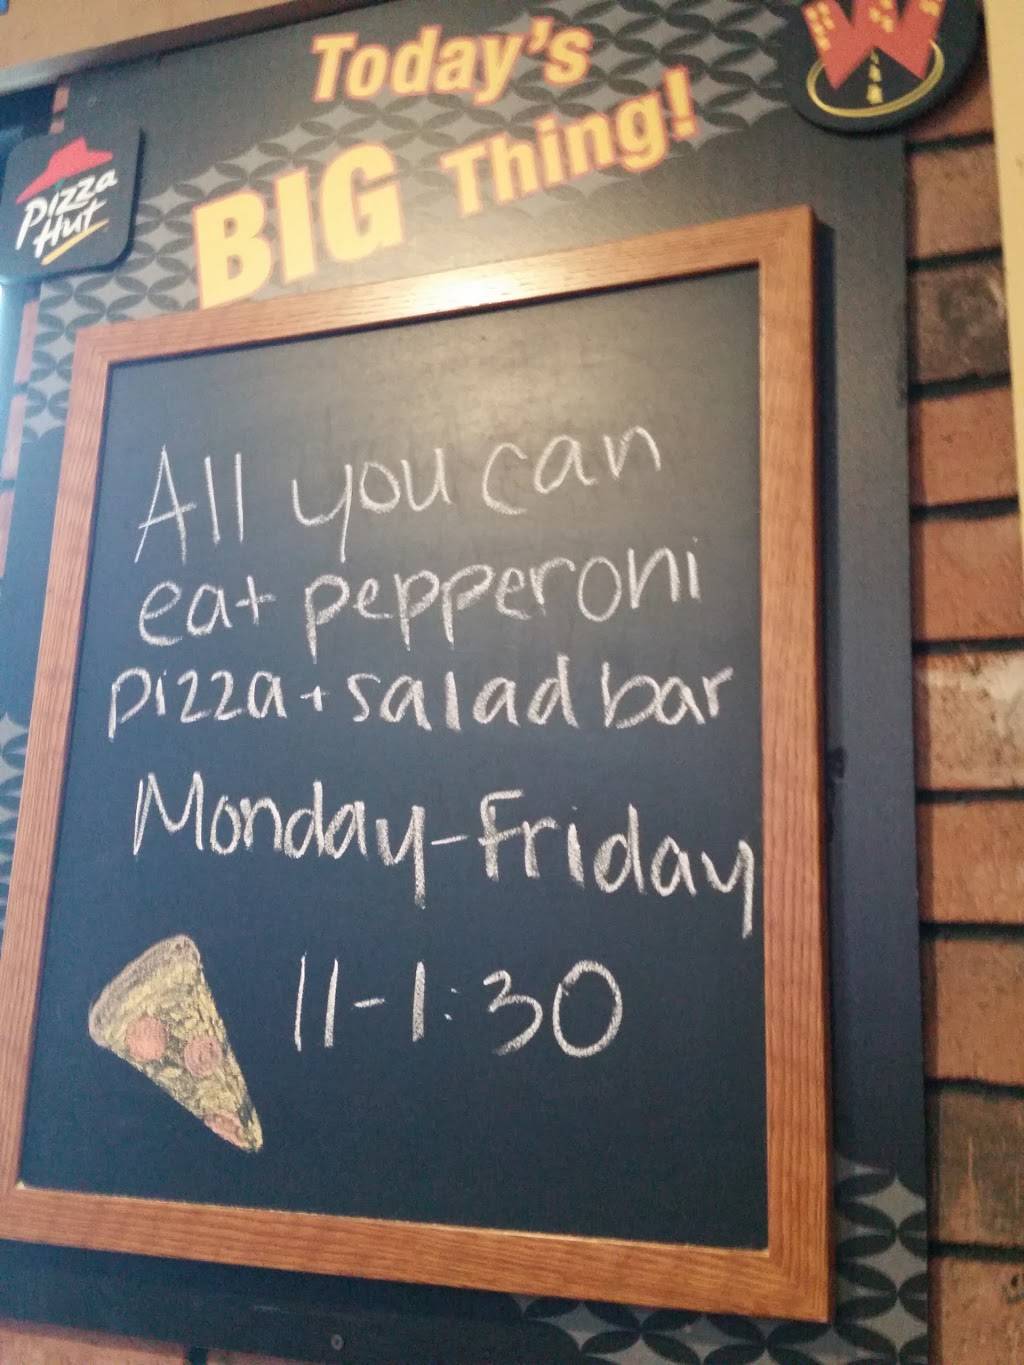 Today's
BIG Thing!
Pizza
Hut
W
All you can
eat pepperoni
pizza + salad bar
Monday-Friday
11-1:30